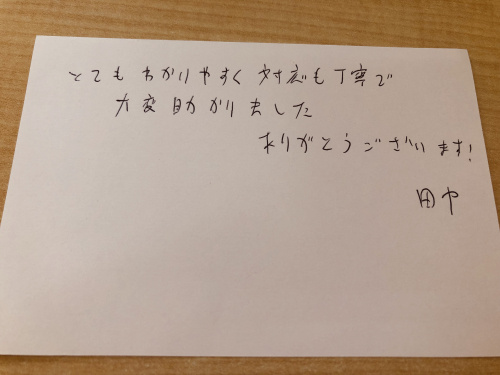 とてもわかりやすく 対応も丁寧で
大変助かりました
ありがとうございます!
田中